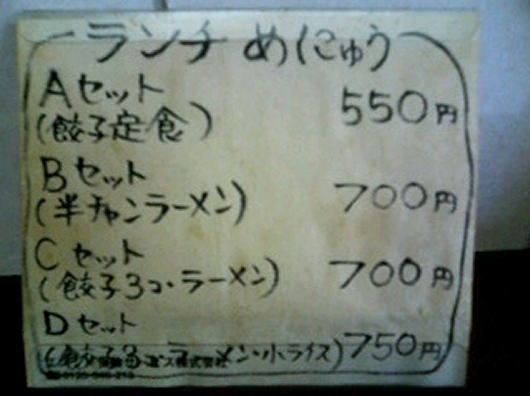 ランチ めにゅう
Aセット
(餃子定食) 550円
Bセット
(半チャンラーメン) 700円
Cセット
(餃子3コ・ラーメン) 700円
Dセット
(餃子3コ・ラーメン・小ライス) 750円
株式会社